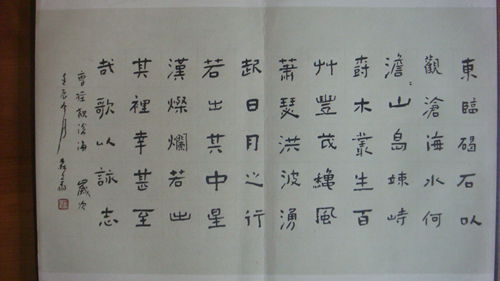 東臨碣石以
觀滄海水何
澹〻山島竦峙
尌木叢生百
艸豐茂龝風
蕭瑟洪波湧
起日月之行
若出其中星
漢燦爛若出
其裡幸甚至
哉歌以詠志
曹操觀滄海 歲次
壬辰 月